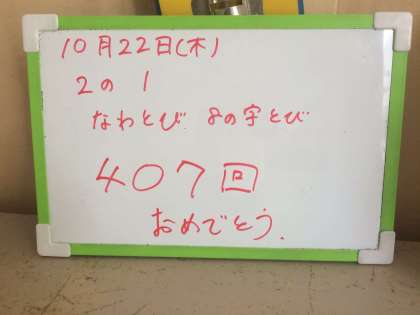 10月22日(木)
2の1
なわとび 8の字とび
407回
おめでとう.